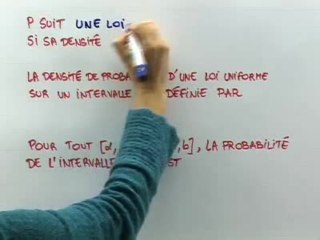 P SUIT UNE LOI
SI SA DENSITÉ
LA DENSITÉ DE PROBA D'UNE LOI UNIFORME
SUR UN INTERVALLE DÉFINIE PAR
POUR TOUT [α, ,b], LA PROBABILITÉ
DE L'INTERVALLE ST